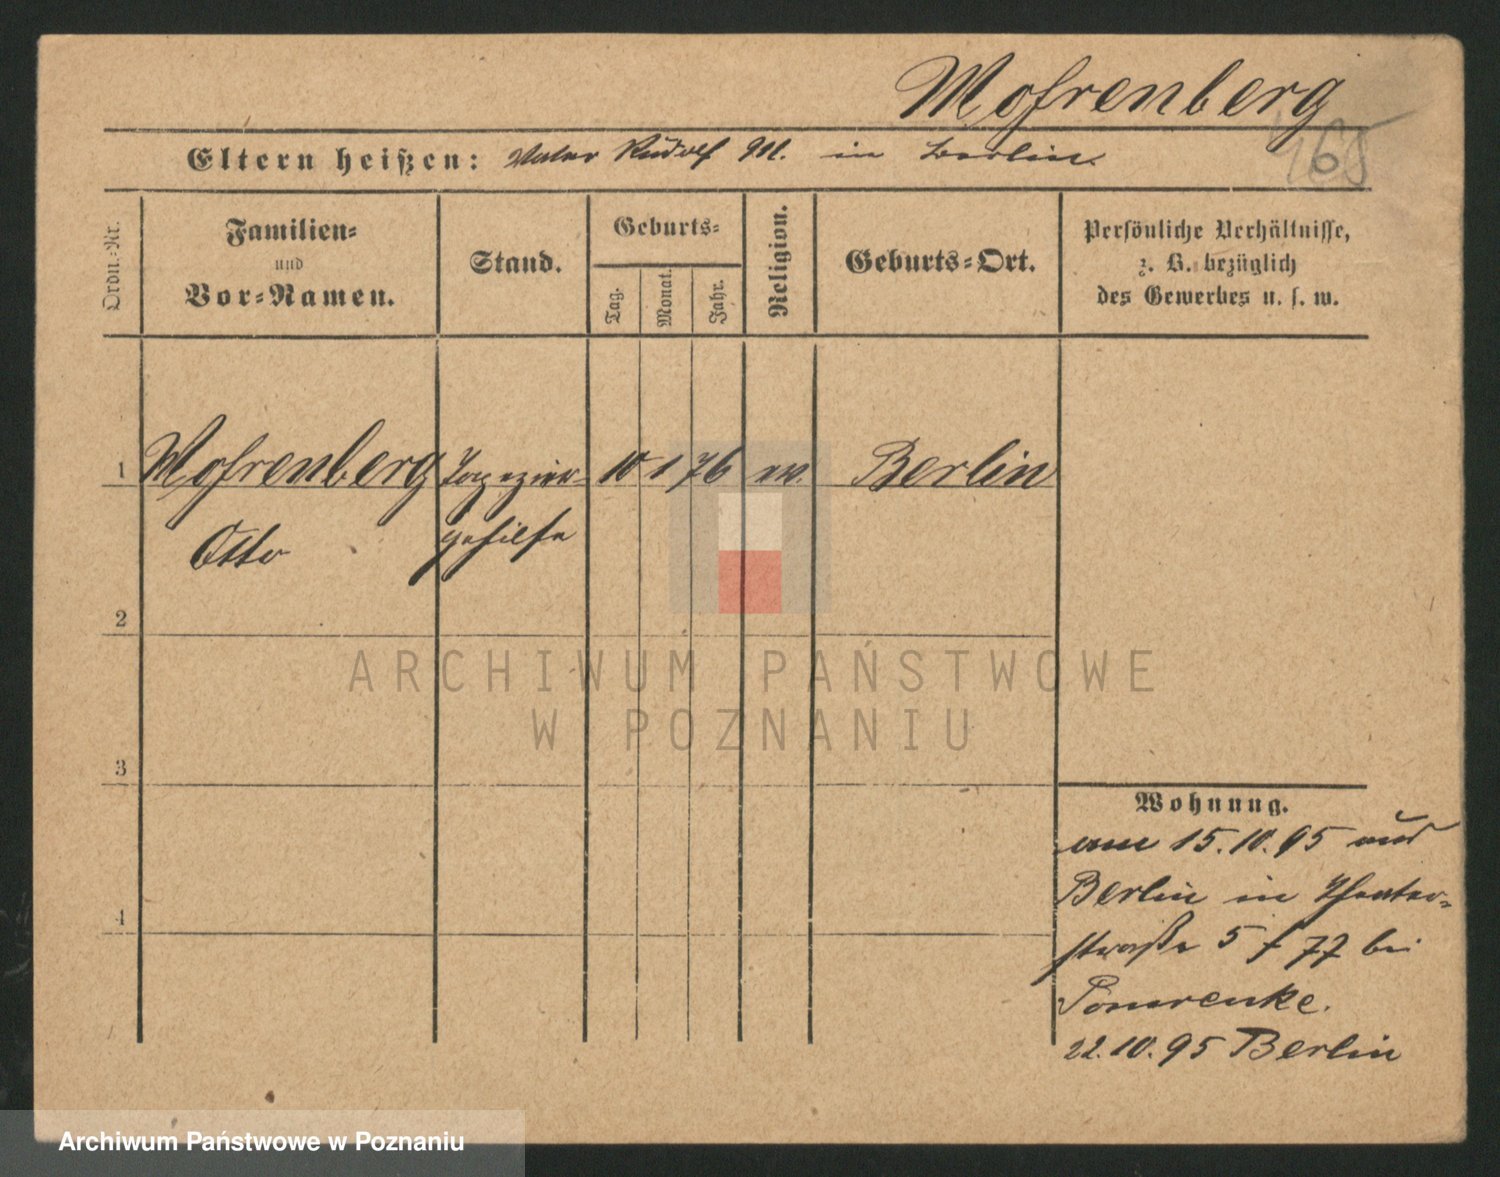 Mohrenberg
Eltern heißen: Vater Rudolf M. in Berlin.
Ordn.-Nr.
Familien-
und
Vor-Namen.
Stand.
Geburts-
Tag.
Monat.
Jahr.
Religion.
Geburts-Ort.
Persönliche Verhältnisse,
z. B. bezüglich
des Gewerbes u. s. w.
1 Mohrenberg Tapezier- 10 1 76 ev. Berlin
Otto gehilfe
2
3
4
Wohnung.
am 15.10.95 aus
Berlin in Theater-
straße 5 f 77 bei
Pomrenke.
22.10.95 Berlin
ARCHIWUM PAŃSTWOWE
W POZNANIU
Archiwum Państwowe w Poznaniu